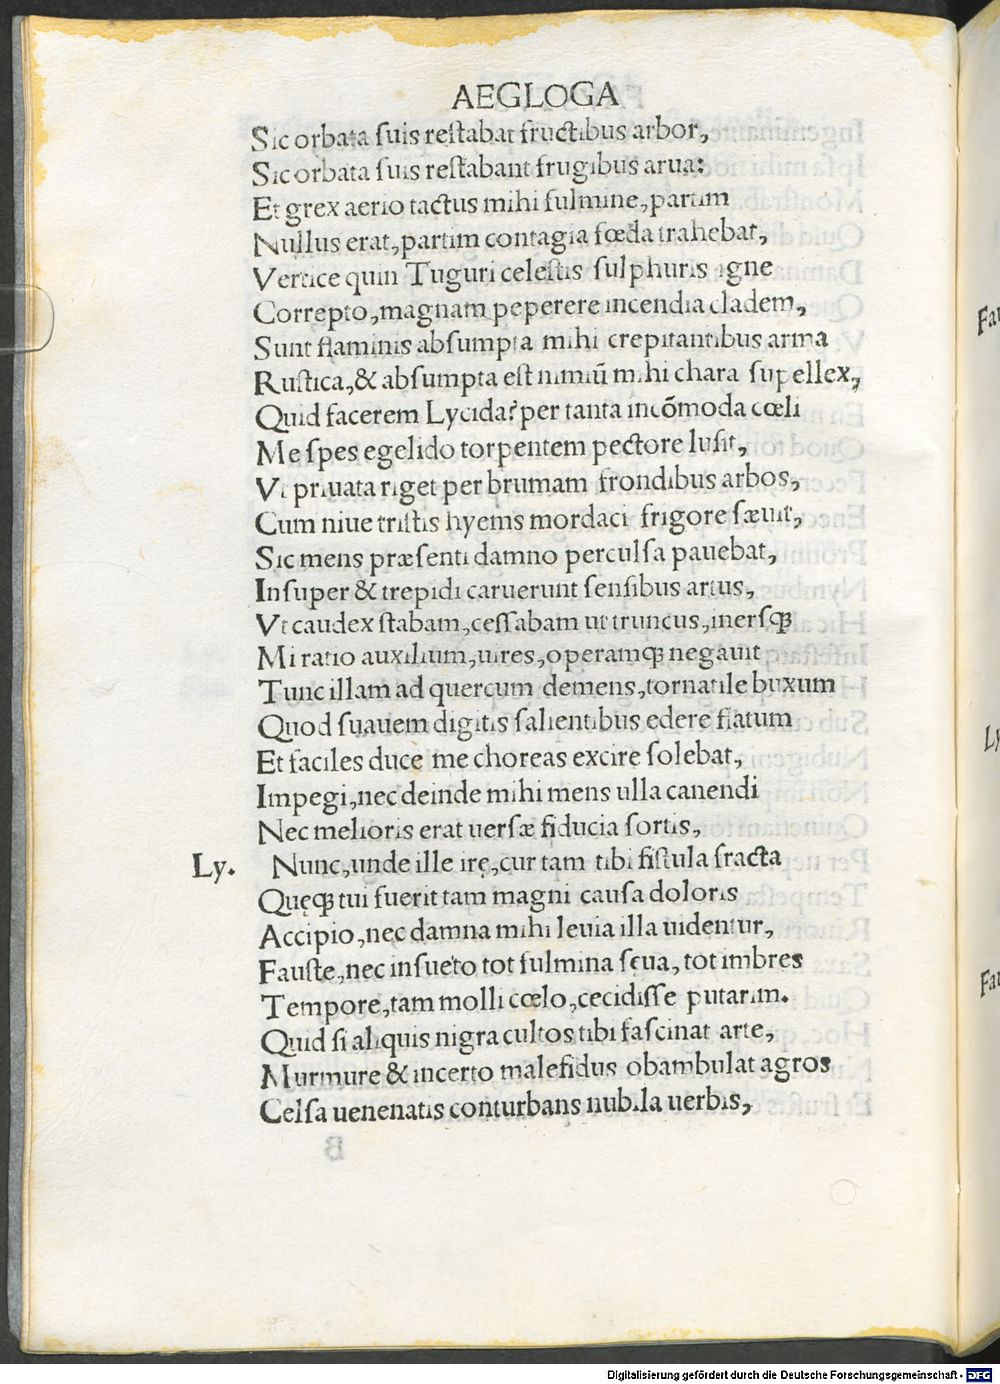 AEGLOGA
Sic orbata ſuis reſtabat fructibus arbor,
Sic orbata ſuis reſtabant frugibus arua:
Et grex aerio tactus mihi fulmine, partim
Nullus erat, partim contagia fœda trahebat,
Vertice quin Tuguri celeſtis ſulphuris igne
Correpto, magnam peperere incendia cladem,
Sunt flaminis abſumpta mihi crepitantibus arma
Ruſtica, & abſumpta eſt nimiũ mihi chara ſupellex,
Quid facerem Lycida? per tanta incõmoda cœli
Me ſpes egelido torpentem pectore luſit,
Vt priuata riget per brumam frondibus arbos,
Cum niue triſtis hyems mordaci frigore ſæuit,
Sic mens præſenti damno perculſa pauebat,
Inſuper & trepidi caruerunt ſenſibus artus,
Vt caudex ſtabam, ceſſabam ut truncus, inerſqꝫ
Mi ratio auxilium, uires, operamqꝫ negauit
Tunc illam ad quercum demens, tornatile buxum
Quod ſuauem digitis ſalientibus edere flatum
Et faciles duce me choreas excire ſolebat,
Impegi, nec deinde mihi mens ulla canendi
Nec melioris erat uerſæ fiducia ſortis,
Ly. Nunc, unde ille irę, cur tam tibi fiſtula fracta
Quęqꝫ tui fuerit tam magni cauſa doloris
Accipio, nec damna mihi leuia illa uidentur,
Fauſte, nec inſueto tot fulmina ſęua, tot imbres
Tempore, tam molli cœlo, cecidiſſe putarim.
Quid ſi aliquis nigra cultos tibi faſcinat arte,
Murmure & incerto malefidus obambulat agros
Celſa uenenatis conturbans nubila uerbis,
Fau
Ly
Fau
Digitalisierung gefördert durch die Deutsche Forschungsgemeinschaft - DFG